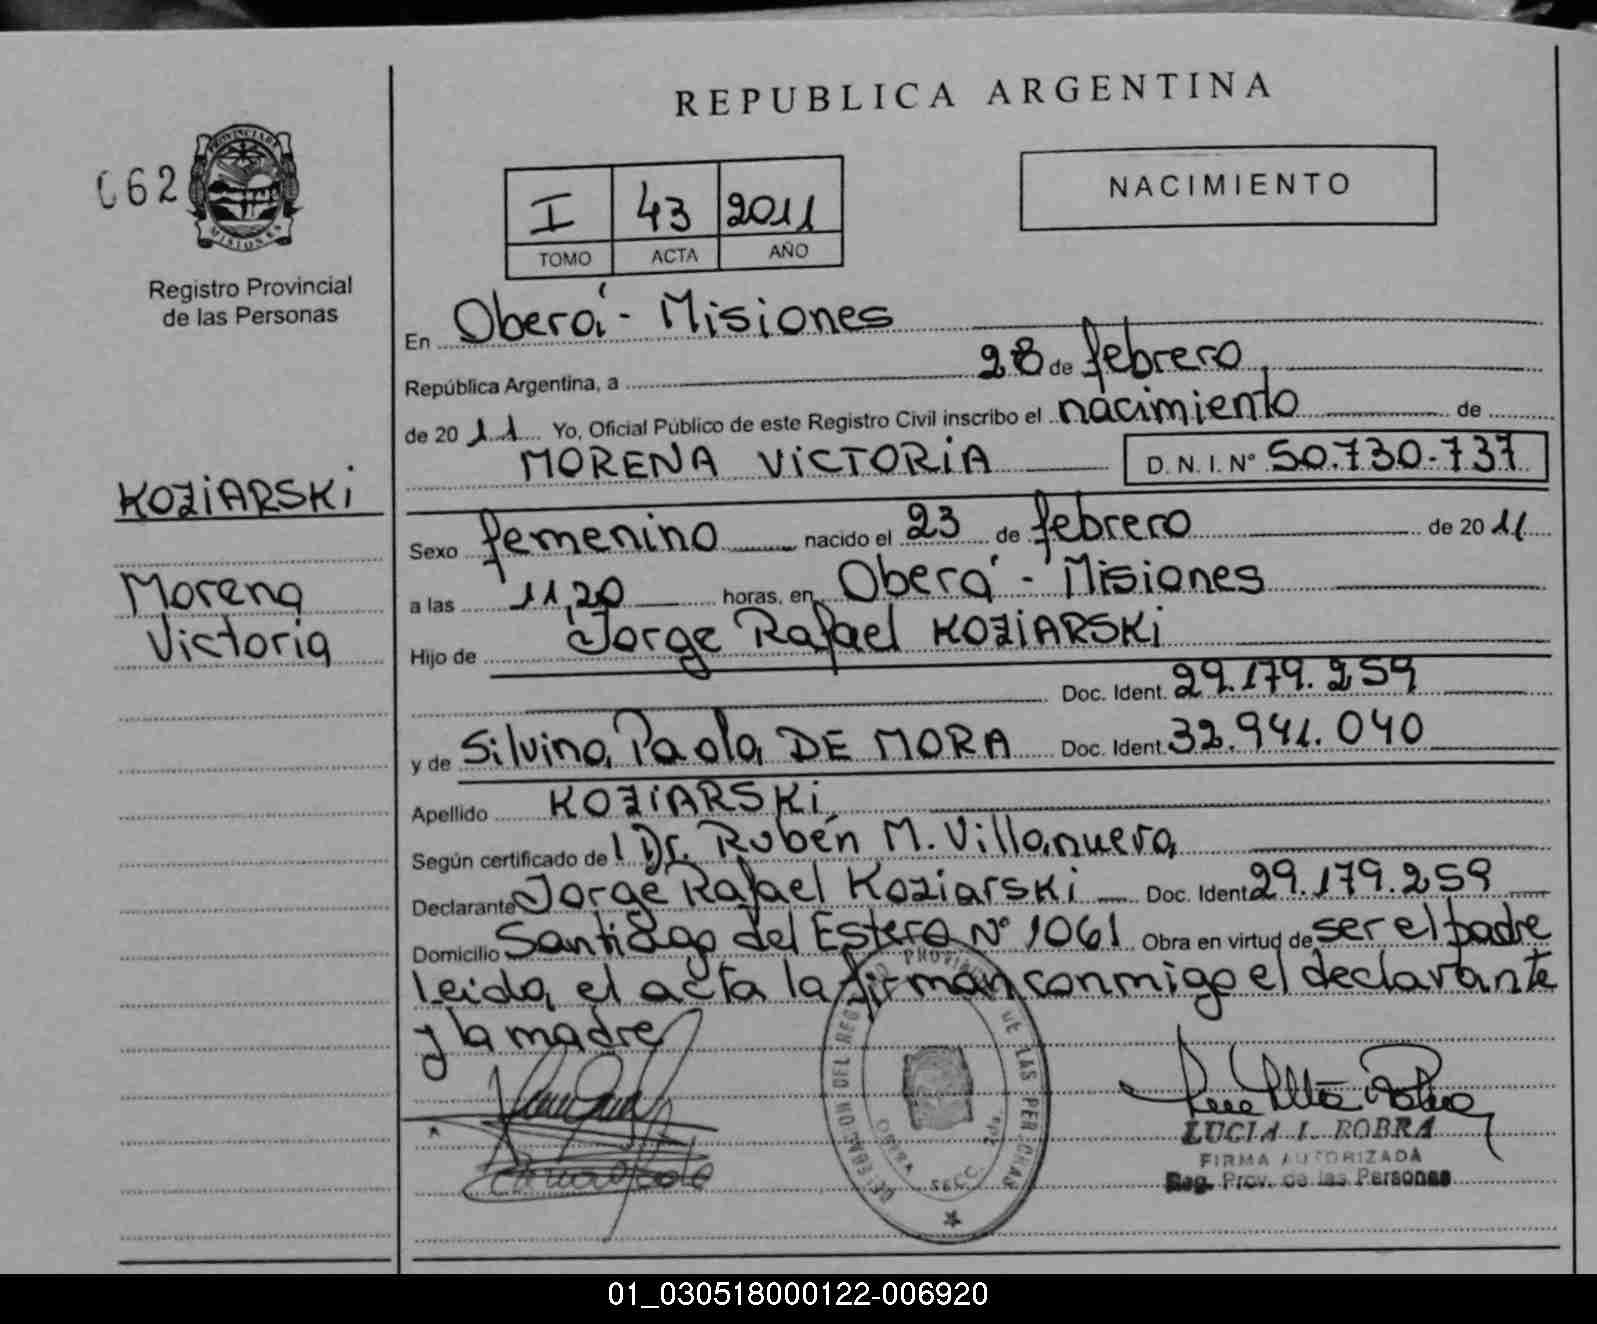 REPUBLICA ARGENTINA
062
PROVINCIA DE
MISIONES
I 43 2011
TOMO ACTA AÑO
NACIMIENTO
Registro Provincial
de las Personas
En Oberá - Misiones
República Argentina, a 28 de febrero
de 2011 Yo, Oficial Público de este Registro Civil inscribo el nacimiento de
MORENA VICTORIA D. N. I. N° 50.730.737
KOZIARSKI
Sexo femenino nacido el 23 de febrero de 2011
Morena
a las 11,20 horas, en Oberá - Misiones
Victoria
Hijo de Jorge Rafael KOZIARSKI
Doc. Ident. 29.179.259
y de Silvina Paola DE MORA Doc. Ident. 32.941.040
Apellido KOZIARSKI
Según certificado de Dr. Rubén M. Villanueva
Declarante Jorge Rafael Koziarski Doc. Ident. 29.179.259
Domicilio Santiago del Estero N° 1061 Obra en virtud de ser el padre
Leida el acta la firman conmigo el declarante
y la madre
LUCIA I. ROBRA
FIRMA AUTORIZADA
Reg. Prov. de las Personas
01_030518000122-006920